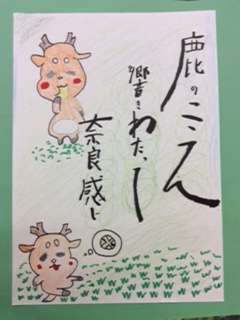 鹿のこえ
響きわたりし
奈良感じ